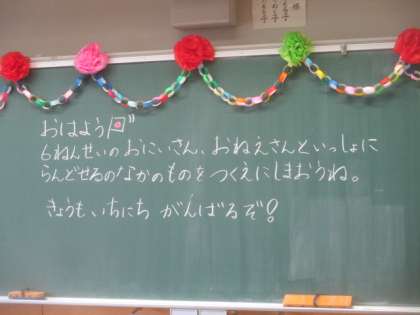 おはよう
6ねんせいの おにいさん、おねえさんといっしょに
らんどせるのなかのものを つくえにしまおうね。
きょうも、いちにち がんばるぞ!